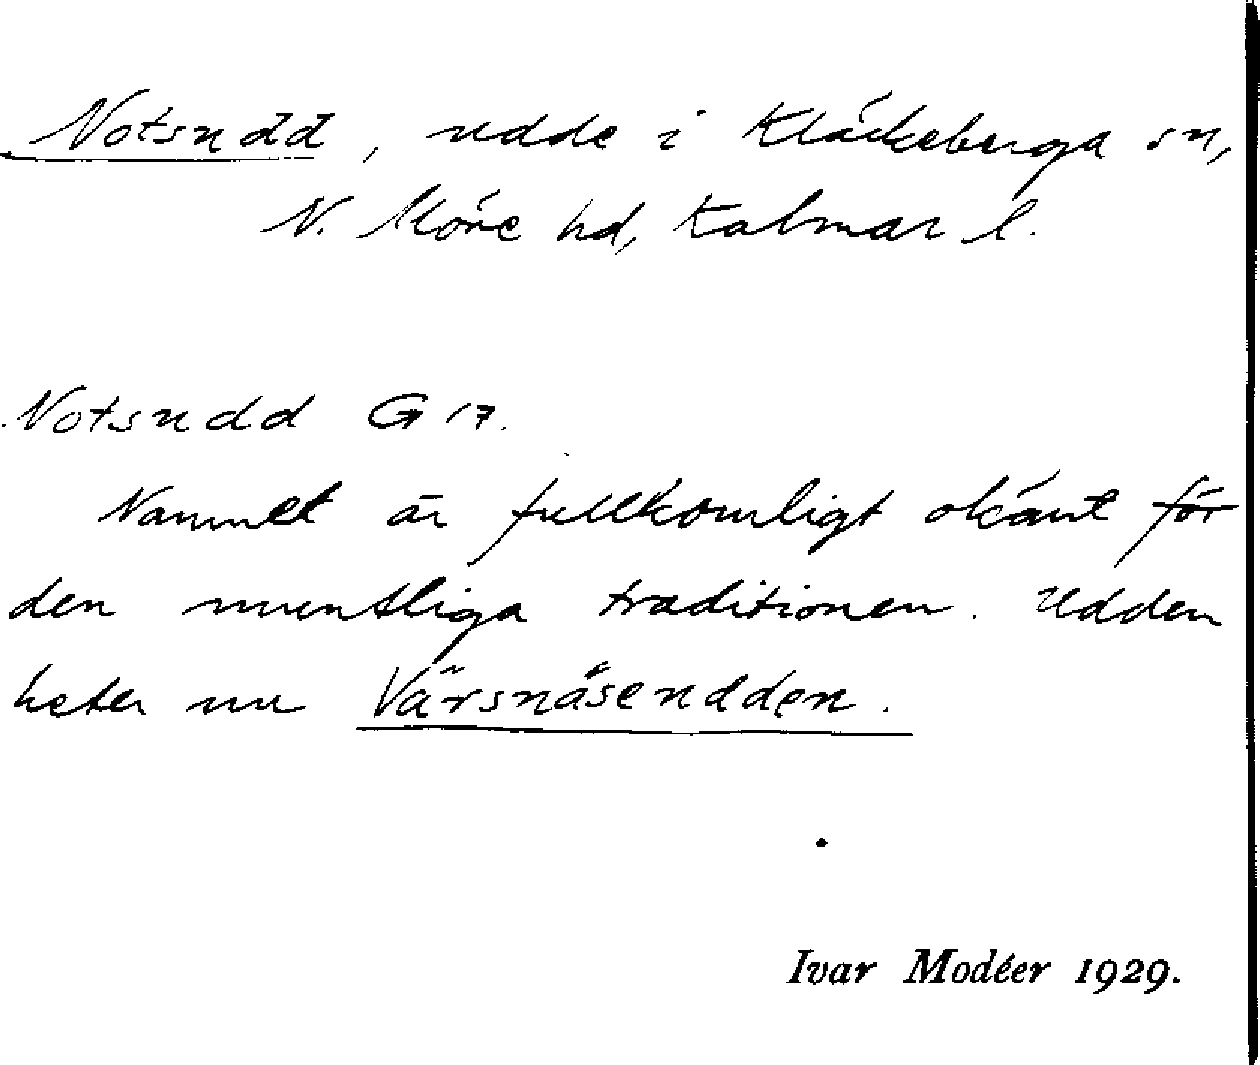 Notsudd, udde i Kläckeberga sn,
N. Möre hd, Kalmar l.
Notsudd G 17.
Namnet är fullkomligt okänt för
den muntliga traditionen. Udden
heter nu Värsnäsudden.
Ivar Modéer 1929.